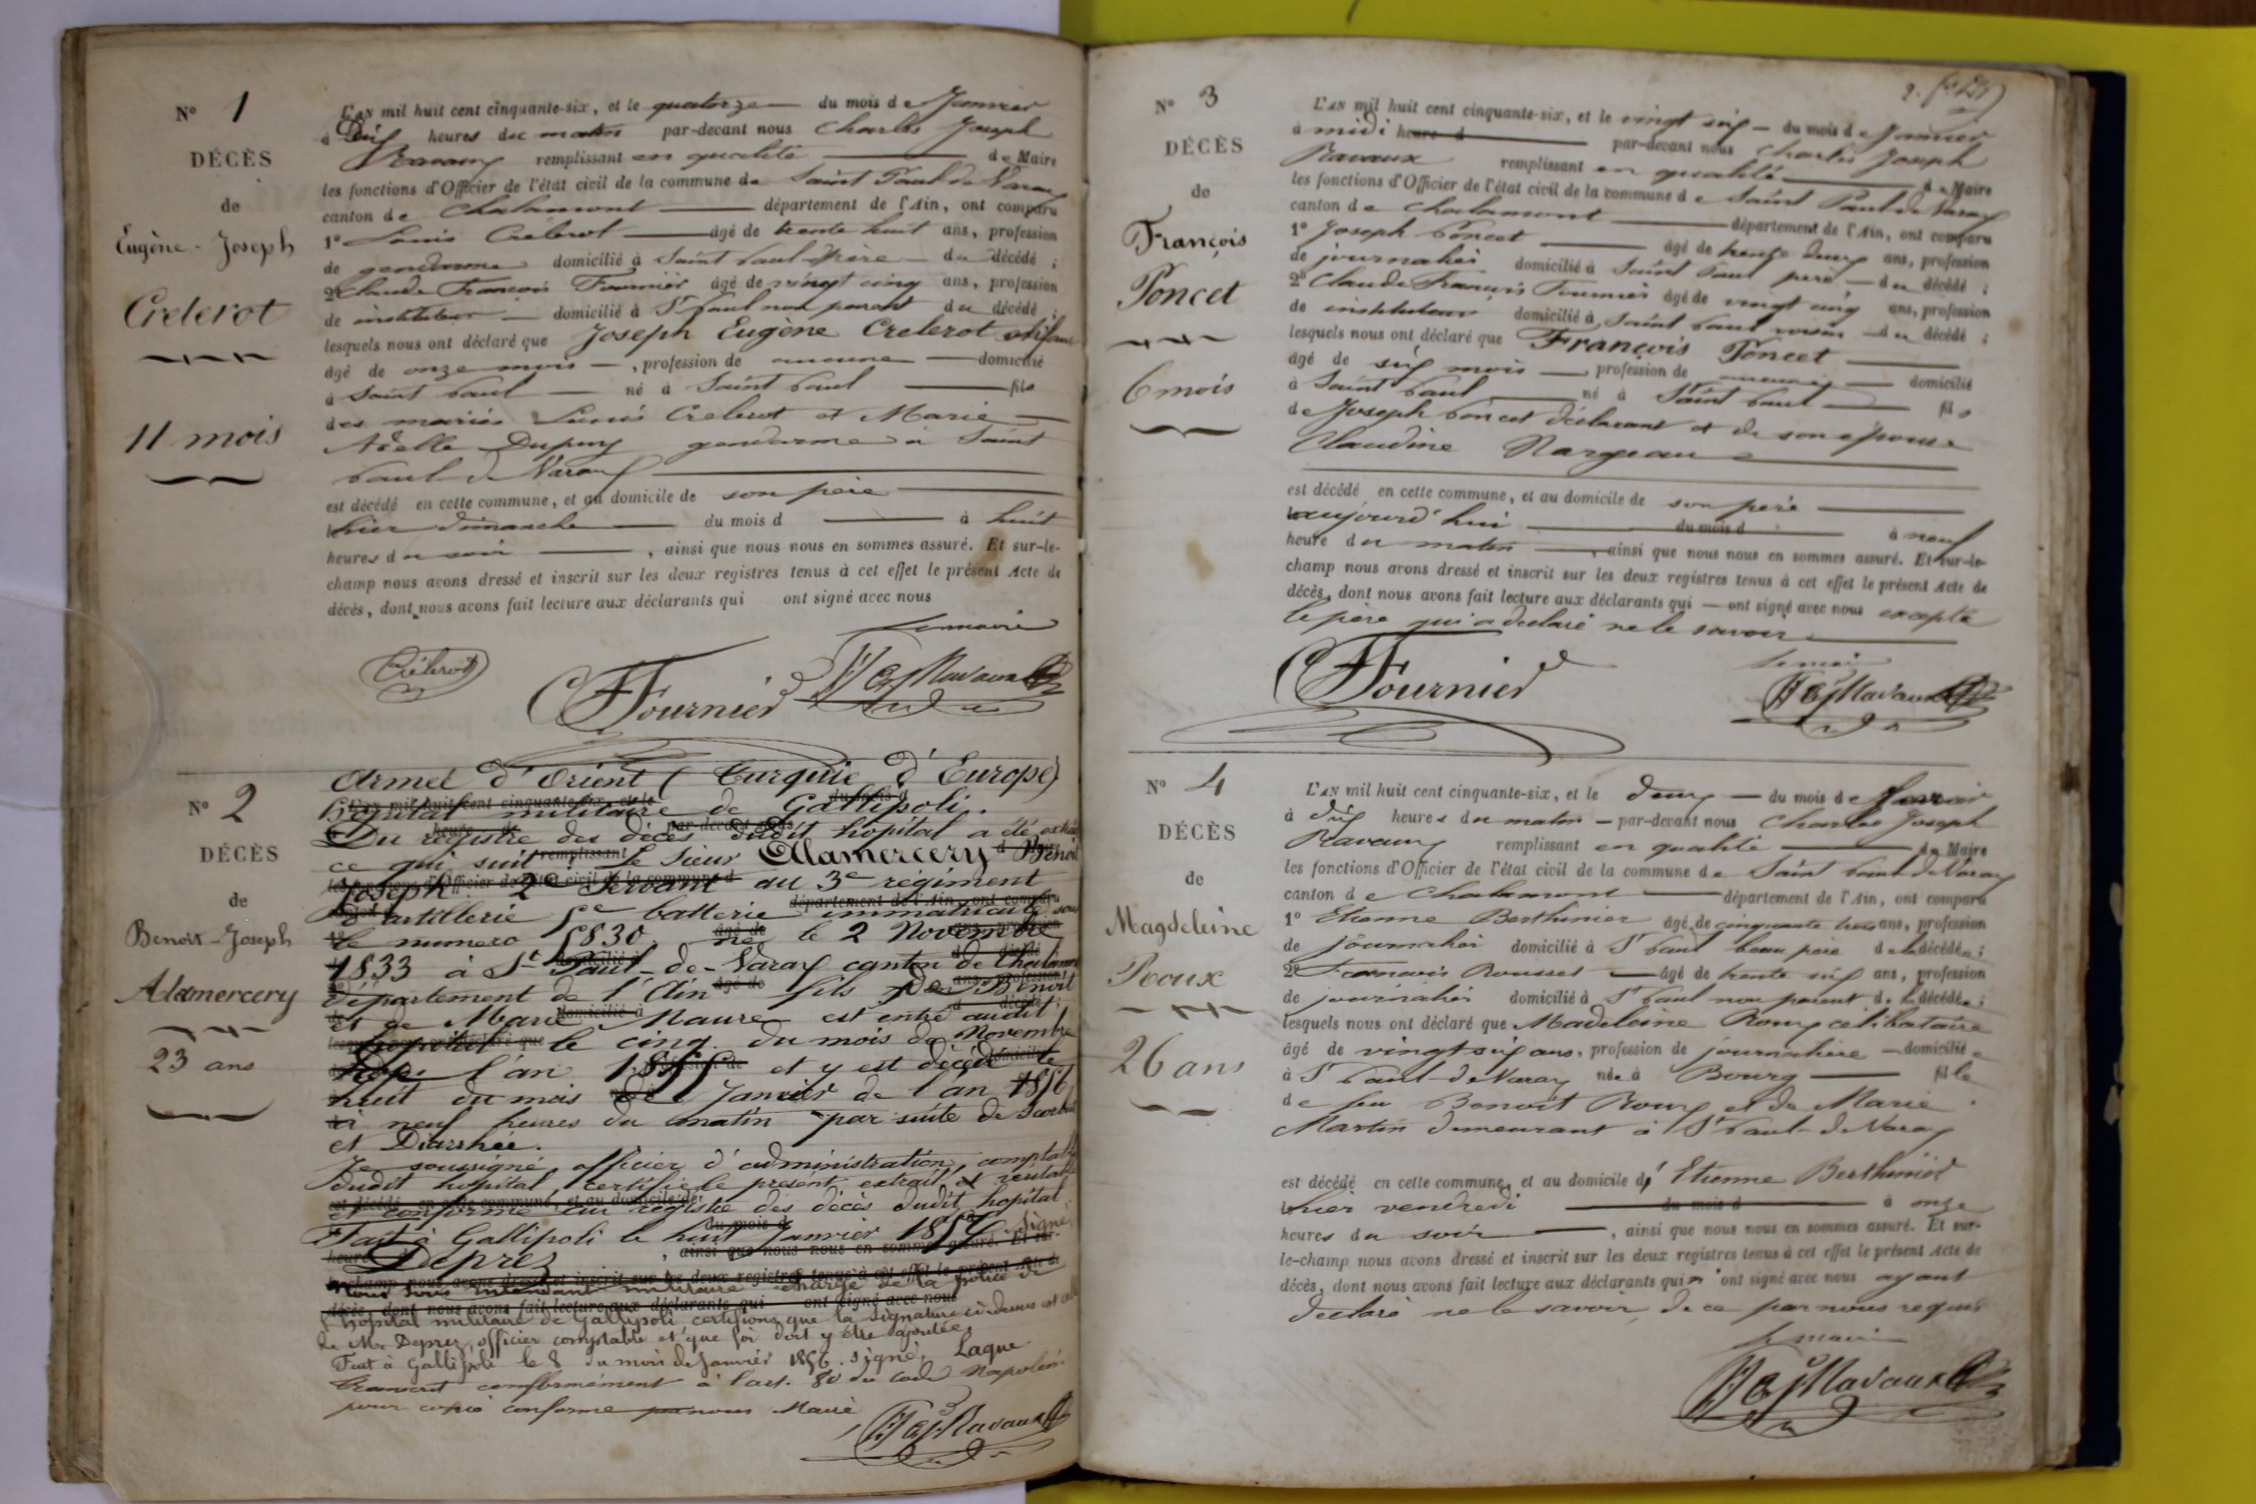 N° 1
DÉCÈS
de
Eugène-Joseph
Crelerot
11 mois
L'AN mil huit cent cinquante-six, et le quatorze du mois de Janvier
à Dix heures du matin par-devant nous Charles Joseph
Ravaux remplissant en qualité de Maire
les fonctions d'Officier de l'état civil de la commune de Saint Paul de Varax
canton de Chalamont département de l'Ain, ont comparu
1° Louis Crelerot âgé de trente huit ans, profession
de gendarme domicilié à Saint Paul père du décédé ;
2° Claude François Fournier âgé de vingt cinq ans, profession
de instituteur domicilié à St Paul non parent du décédé ;
lesquels nous ont déclaré que Joseph Eugène Crelerot enfant
âgé de onze mois, profession de aucune domicilié
à Saint Paul né à Saint Paul fils
des mariés Louis Crelerot et Marie
Adelle Dupuy gendarme à Saint
Paul de Varax
est décédé en cette commune, et au domicile de son père
hier dimanche du mois d à huit
heures du soir, ainsi que nous nous en sommes assuré. Et sur-le-
champ nous avons dressé et inscrit sur les deux registres tenus à cet effet le présent Acte de
décès, dont nous avons fait lecture aux déclarants qui ont signé avec nous
Le maire
Crélerot
Fournier
Ravaux
N° 2
DÉCÈS
de
Benoit-Joseph
Alamercery
23 ans
Armée d'Orient (Turquie d'Europe)
hopital militaire de Gallipoli.
Du registre des décès dudit hopital a été extrait
ce qui suit le sieur Alamercery Benoit
Joseph 2e Servant au 3e régiment
d'artillerie 5e batterie immatriculé sous
le numero 5830 né le 2 Novembre
1833 à St Paul-de-Varax canton de Chalamont
département de l'Ain fils de Benoit
et de Marie Maure est entré audit
hopital le cinq du mois de Novembre
de l'an 1855 et y est décédé le
huit du mois de Janvier de l'an 1856
à neuf heures du matin par suite de Scorbut
et Diarrhée.
Je soussigné officier d'administration, comptable
dudit hopital, certifie le présent extrait, et véritable
et conforme au registre des décès dudit hopital
Fait à Gallipoli le huit Janvier 1856 signé
Deprez
Nous Sous intendant militaire chargé de la police de
l'hopital militaire de Gallipoli certifions que la signature ci-dessus est celle
de Mr Deprez, officier comptable et que foi doit y être ajoutée.
Fait à Gallipoli le 8 du mois de Janvier 1856. signé, Laque
Transcrit conformément à l'art. 80 du Code Napoléon
pour copie conforme par nous Maire
Ravaux
N° 3
DÉCÈS
de
François
Poncet
6 mois
L'AN mil huit cent cinquante-six, et le vingt six du mois de Janvier
à midi heure d par-devant nous Charles Joseph
Ravaux remplissant en qualité de Maire
les fonctions d'Officier de l'état civil de la commune de Saint Paul de Varax
canton de Chalamont département de l'Ain, ont comparu
1° Joseph Poncet âgé de trente deux ans, profession
de journalier domicilié à Saint Paul père du décédé ;
2° Claude François Fournier âgé de vingt cinq ans, profession
de instituteur domicilié à Saint Paul voisin du décédé ;
lesquels nous ont déclaré que François Poncet
âgé de six mois, profession de aucune domicilié
à Saint Paul né à Saint Paul fils
de Joseph Poncet déclarant et de son épouse
Claudine Nargeau
est décédé en cette commune, et au domicile de son père
aujourd'hui du mois d à neuf
heure du matin, ainsi que nous nous en sommes assuré. Et sur-le-
champ nous avons dressé et inscrit sur les deux registres tenus à cet effet le présent Acte de
décès, dont nous avons fait lecture aux déclarants qui ont signé avec nous excepté
le père qui a declaré ne le savoir
Le maire
Fournier
Ravaux
N° 4
DÉCÈS
de
Magdeleine
Roux
26 ans
L'AN mil huit cent cinquante-six, et le deux du mois de
à dix heures du matin par-devant nous Charles Joseph
Ravaux remplissant en qualité de Maire
les fonctions d'Officier de l'état civil de la commune de Saint Paul de Varax
canton de Chalamont département de l'Ain, ont comparu
1° Etienne Berthinier âgé de cinquante trois ans, profession
de journalier domicilié à St Paul beau père de la décédée ;
2° François Rousset âgé de trente six ans, profession
de journalier domicilié à St Paul non parent de la décédée ;
lesquels nous ont déclaré que Madeleine Roux célibataire
âgé de vingt six ans, profession de journalière domiciliée
à St Paul-de-Varax née à Bourg fille
de feu Benoit Roux et de Marie
Martin demeurant à St Paul-de-Varax
est décédé en cette commune, et au domicile d'Etienne Berthinier
hier vendredi du mois d à onze
heures du soir, ainsi que nous nous en sommes assuré. Et sur-
le-champ nous avons dressé et inscrit sur les deux registres tenus à cet effet le présent Acte de
décès, dont nous avons fait lecture aux déclarants qui n'ont signé avec nous ayant
déclaré ne le savoir de ce par nous requis
Le maire
Ravaux